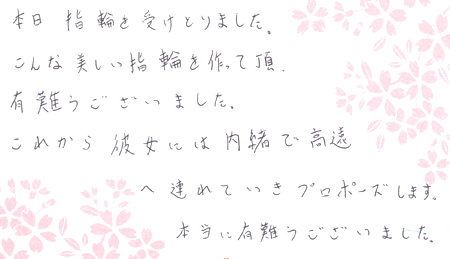 本日 指輪を受けとりました。
こんな美しい指輪を作って頂、
有難うございました。
これから彼女には内緒で高遠
へ連れていきプロポーズします。
本当に有難うございました。